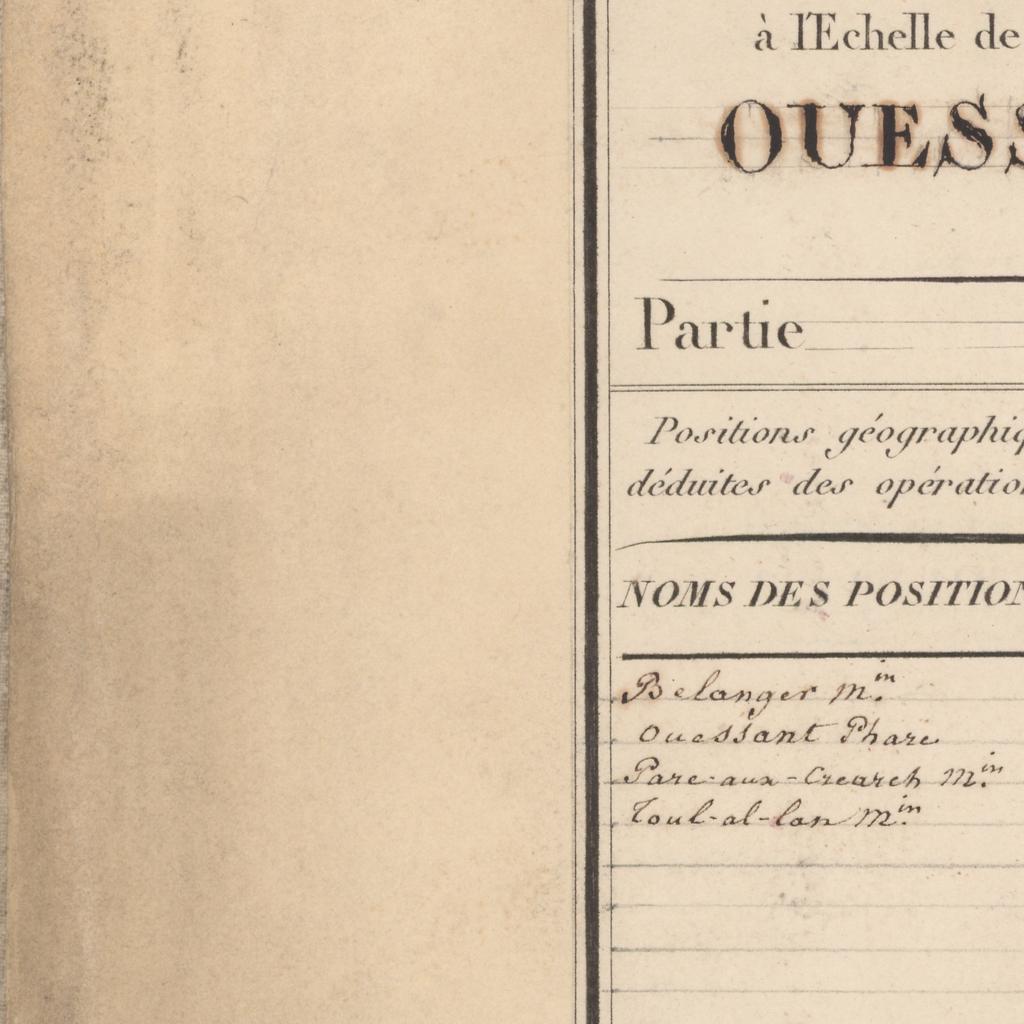 à l'Echelle de
OUESS
Partie
Positions géographiq
déduites des opération
NOMS DES POSITION
Belanger m.in
Ouessant Phare
Parc-aux-Crearch m.in
Toul-al-lan m.in